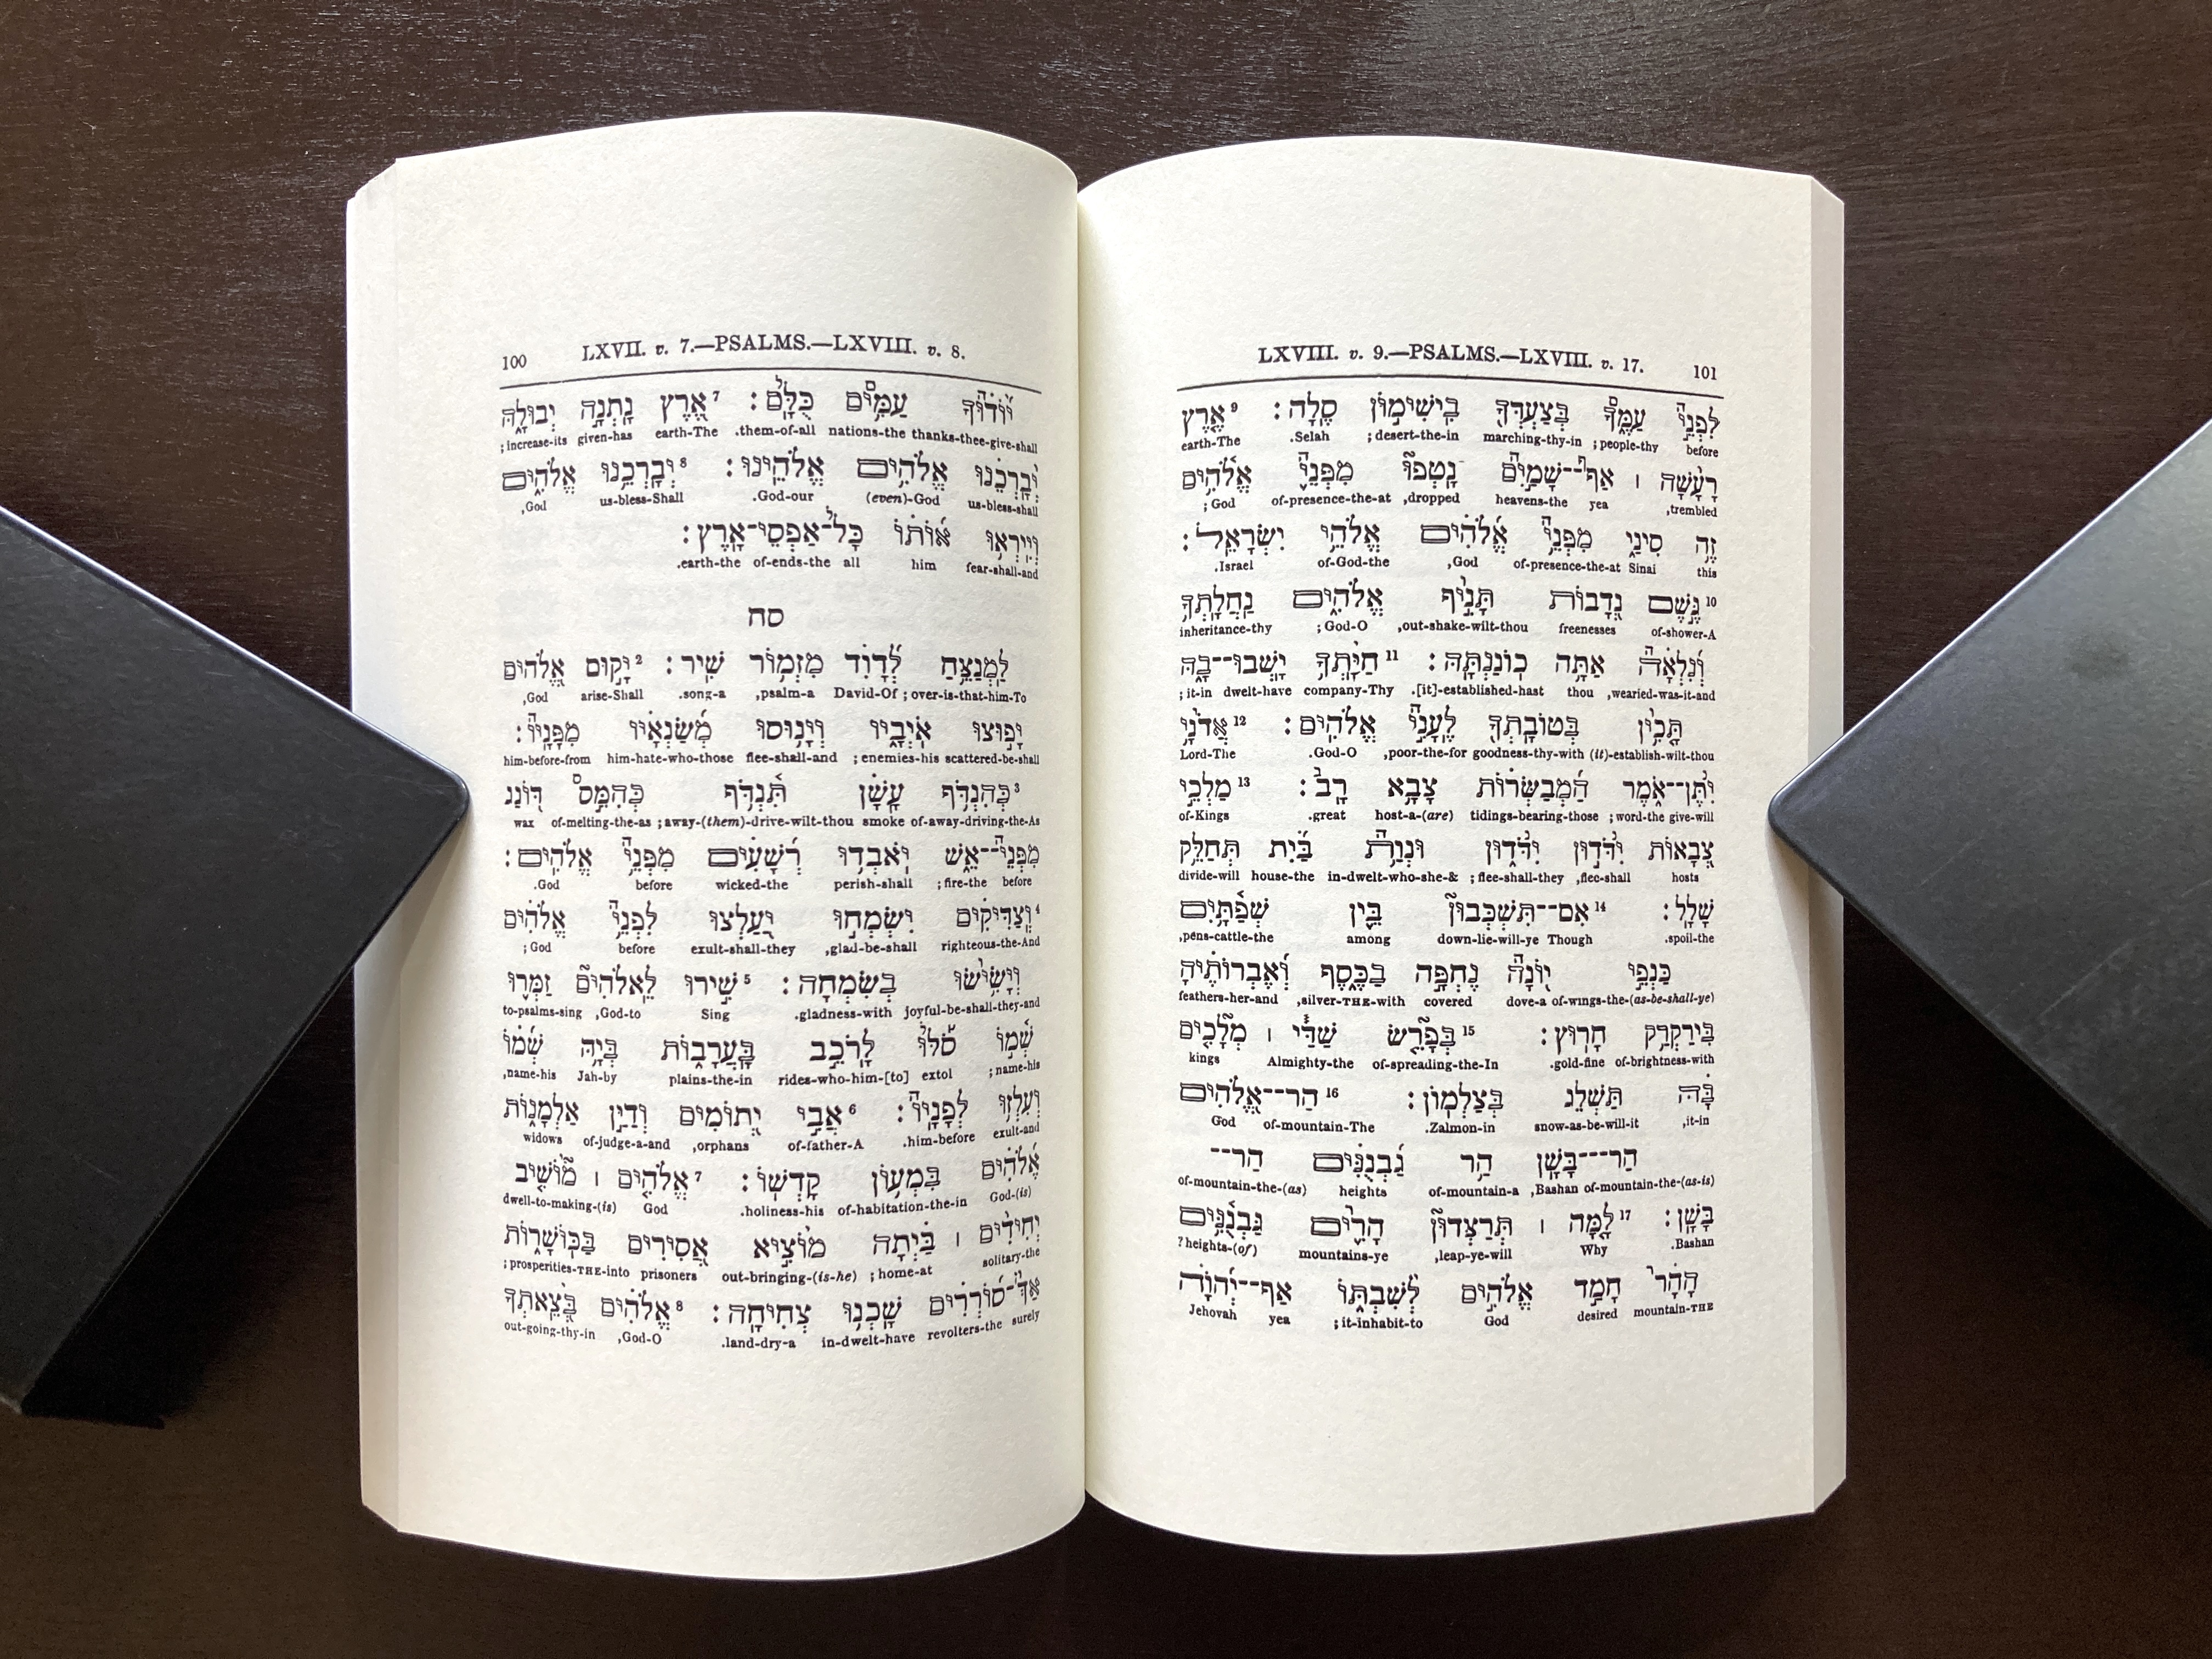 100 LXVII. v. 7.—PSALMS.—LXVIII. v. 8.
יוֹדוּךָ עַמִּים כֻּלָּם׃ 7 אֶרֶץ נָתְנָה יְבוּלָהּ
;increase-its given-has earth-The .them-of-all nations-the thanks-thee-give-shall
יְבָרְכֵנוּ אֱלֹהִים אֱלֹהֵינוּ׃ 8 יְבָרְכֵנוּ אֱלֹהִים
,God us-bless-Shall .God-our (even)-God us-bless-shall
וְיִירְאוּ אוֹתוֹ כָּל־אַפְסֵי־אָרֶץ׃
.earth-the of-ends-the all him fear-shall-and
סח
לַמְנַצֵּחַ לְדָוִד מִזְמוֹר שִׁיר׃ 2 יָקוּם אֱלֹהִים
,God arise-Shall .song-a ,psalm-a David-Of ;over-is-that-him-To
יָפוּצוּ אוֹיְבָיו וְיָנוּסוּ מְשַׂנְאָיו מִפָּנָיו׃
him-before-from him-hate-who-those flee-shall-and ;enemies-his scattered-be-shall
3 כְּהִנְדֹּף עָשָׁן תִּנְדֹּף כְּהִמֵּס דּוֹנַג
wax of-melting-the-as ;away-(them)-drive-wilt-thou smoke of-away-driving-the-As
מִפְּנֵי־אֵשׁ יֹאבְדוּ רְשָׁעִים מִפְּנֵי אֱלֹהִים׃
.God before wicked-the perish-shall ;fire-the before
4 וְצַדִּיקִים יִשְׂמְחוּ יַעַלְצוּ לִפְנֵי אֱלֹהִים
;God before exult-shall-they ,glad-be-shall righteous-the-And
וְיָשִׂישׂוּ בְשִׂמְחָה׃ 5 שִׁירוּ לֵאלֹהִים זַמְּרוּ
to-psalms-sing ,God-to Sing .gladness-with joyful-be-shall-they-and
שְׁמוֹ סֹלּוּ לָרֹכֵב בָּעֲרָבוֹת בְּיָהּ שְׁמוֹ
,name-his Jah-by plains-the-in rides-who-him-[to] extol ;name-his
וְעִלְזוּ לְפָנָיו׃ 6 אֲבִי יְתוֹמִים וְדַיַּן אַלְמָנוֹת
widows of-judge-a-and ,orphans of-father-A .him-before exult-and
אֱלֹהִים בִּמְעוֹן קָדְשׁוֹ׃ 7 אֱלֹהִים ׀ מוֹשִׁיב
dwell-to-making-(is) God .holiness-his of-habitation-the-in God-(is)
יְחִידִים ׀ בַּיְתָה מוֹצִיא אֲסִירִים בַּכּוֹשָׁרוֹת
;prosperities-THE-into prisoners out-bringing-(is-he) ;home-at solitary-the
אַךְ־סוֹרְרִים שָׁכְנוּ צְחִיחָה׃ 8 אֱלֹהִים בְּצֵאתְךָ
out-going-thy-in ,God-O .land-dry-a in-dwelt-have revolters-the surely
LXVIII. v. 9.—PSALMS.—LXVIII. v. 17. 101
לִפְנֵי עַמֶּךָ בְּצַעְדְּךָ בִישִׁימוֹן סֶלָה׃ 9 אֶרֶץ
earth-The .Selah ;desert-the-in marching-thy-in ;people-thy before
רָעָשָׁה ׀ אַף־שָׁמַיִם נָטְפוּ מִפְּנֵי אֱלֹהִים
;God of-presence-the-at ,dropped heavens-the yea ,trembled
זֶה סִינַי מִפְּנֵי אֱלֹהִים אֱלֹהֵי יִשְׂרָאֵל׃
.Israel of-God-the ,God of-presence-the-at Sinai this
10 גֶּשֶׁם נְדָבוֹת תָּנִיף אֱלֹהִים נַחֲלָתְךָ
inheritance-thy ;God-O ,out-shake-wilt-thou freenesses of-shower-A
וְנִלְאָה אַתָּה כוֹנַנְתָּהּ׃ 11 חַיָּתְךָ יָשְׁבוּ־בָהּ
;it-in dwelt-have company-Thy .[it]-established-hast thou ,wearied-was-it-and
תָּכִין בְּטוֹבָתְךָ לֶעָנִי אֱלֹהִים׃ 12 אֲדֹנָי
Lord-The .God-O ,poor-the-for goodness-thy-with (it)-establish-wilt-thou
יִתֶּן־אֹמֶר הַמְבַשְּׂרוֹת צָבָא רָב׃ 13 מַלְכֵי
of-Kings .great host-a-(are) tidings-bearing-those ;word-the give-will
צְבָאוֹת יִדֹּדוּן יִדֹּדוּן וּנְוַת בַּיִת תְּחַלֵּק
divide-will house-the in-dwelt-who-she-& ;flee-shall-they ,flee-shall hosts
שָׁלָל׃ 14 אִם־תִּשְׁכְּבוּן בֵּין שְׁפַתָּיִם
,pens-cattle-the among down-lie-will-ye Though .spoil-the
כַּנְפֵי יוֹנָה נֶחְפָּה בַכֶּסֶף וְאֶבְרוֹתֶיהָ
feathers-her-and ,silver-THE-with covered dove-a of-wings-the-(as-be-shall-ye)
בִּירַקְרַק חָרוּץ׃ 15 בְּפָרֵשׂ שַׁדַּי ׀ מְלָכִים
kings Almighty-the of-spreading-the-In .gold-fine of-brightness-with
בָּהּ תַּשְׁלֵג בְּצַלְמוֹן׃ 16 הַר־אֱלֹהִים
God of-mountain-The .Zalmon-in snow-as-be-will-it ,it-in
הַר־בָּשָׁן הַר גַּבְנֻנִּים הַר־
of-mountain-the-(as) heights of-mountain-a ,Bashan of-mountain-the-(as-is)
בָּשָׁן׃ 17 לָמָּה ׀ תְּרַצְּדוּן הָרִים גַּבְנֻנִּים
?heights-(of) mountains-ye ,leap-ye-will Why .Bashan
הָהָר חָמַד אֱלֹהִים לְשִׁבְתּוֹ אַף־יְהוָה
Jehovah yea ;it-inhabit-to God desired mountain-THE